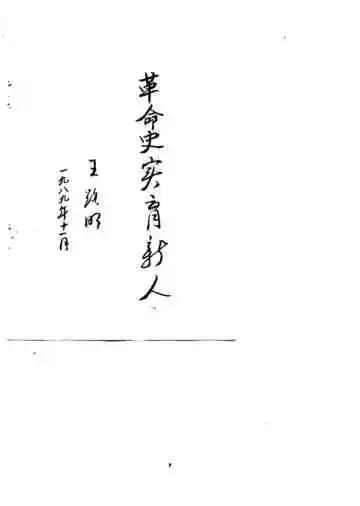 革命史实育新人
王政明
一九八九年十一月